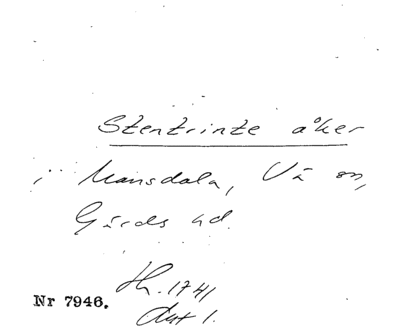 Stentrinte åker
i Mansdala, Vå sn,
Gärds hd.
Hh. 1741
Akt 1.
Nr 7946.